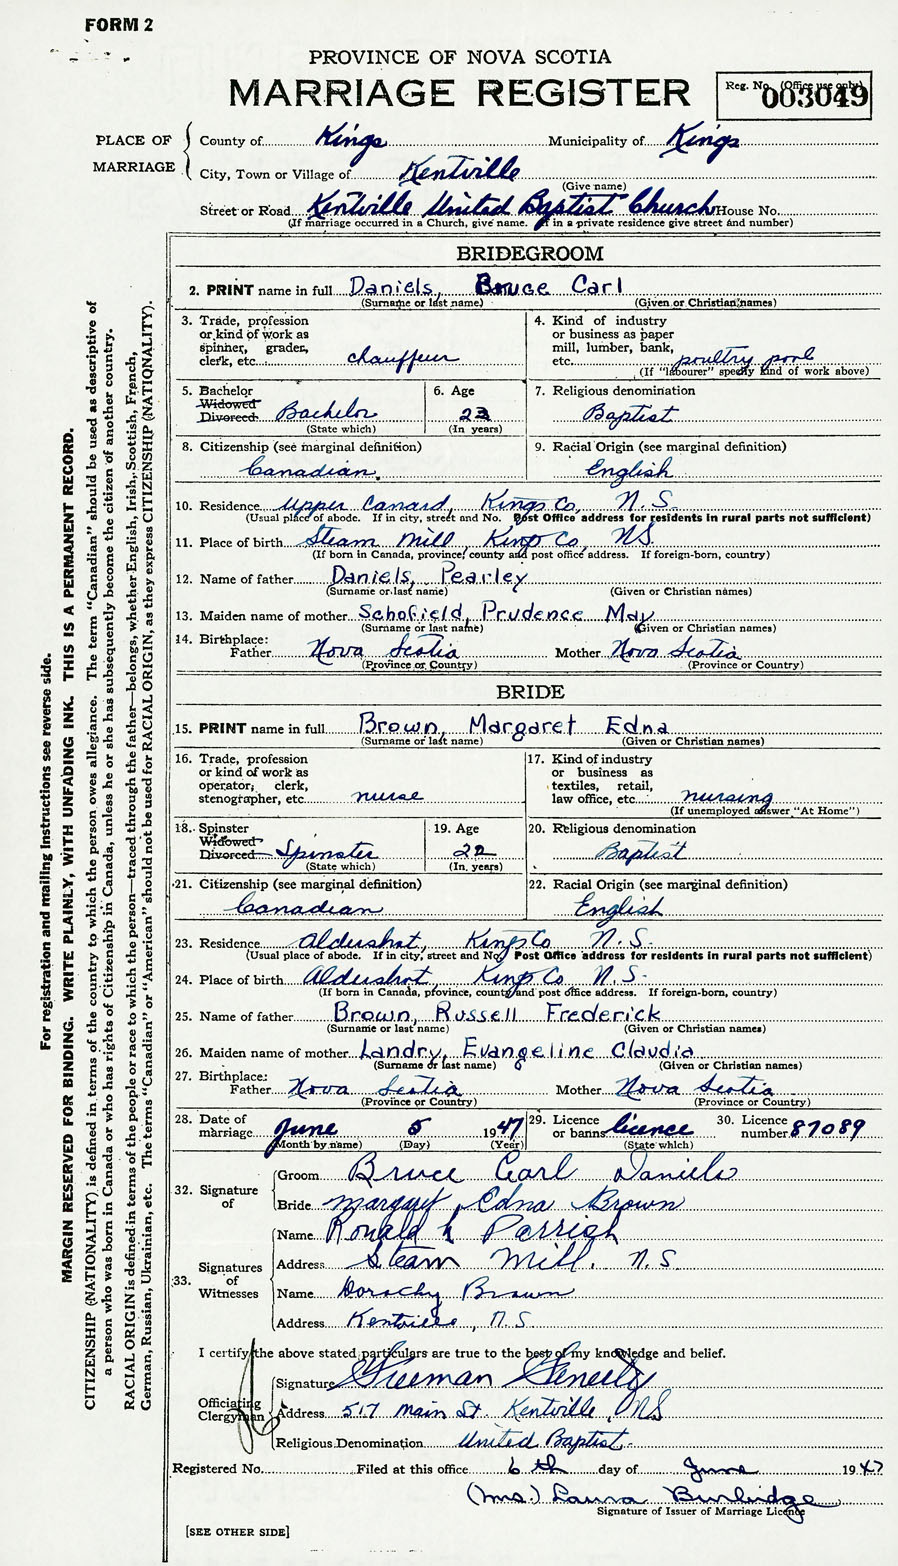 FORM 2
PROVINCE OF NOVA SCOTIA
MARRIAGE REGISTER
Reg. No. (Office use only)
003049
PLACE OF MARRIAGE
County of Kings Municipality of Kings
City, Town or Village of Kentville
(Give name)
Street or Road Kentville United Baptist Church House No.
(If marriage occurred in a Church, give name. If in a private residence give street and number)
BRIDEGROOM
2. PRINT name in full Daniels, Bruce Carl
(Surname or last name) (Given or Christian names)
3. Trade, profession or kind of work as spinner, grader, clerk, etc. chauffeur
4. Kind of industry or business as paper mill, lumber, bank, etc. poultry pool
(If "labourer" specify kind of work above)
5. Bachelor Widowed Divorced Bachelor
(State which)
6. Age 23
(In years)
7. Religious denomination
Baptist
8. Citizenship (see marginal definition)
Canadian
9. Racial Origin (see marginal definition)
English
10. Residence Upper Canard, Kings Co, N.S.
(Usual place of abode. If in city, street and No. Post Office address for residents in rural parts not sufficient)
11. Place of birth Steam Mill, Kings Co, N.S.
(If born in Canada, province, county and post office address. If foreign-born, country)
12. Name of father Daniels, Pearley
(Surname or last name) (Given or Christian names)
13. Maiden name of mother Schofield, Prudence May
(Surname or last name) (Given or Christian names)
14. Birthplace:
Father Nova Scotia Mother Nova Scotia
(Province or Country) (Province or Country)
BRIDE
15. PRINT name in full Brown, Margaret Edna
(Surname or last name) (Given or Christian names)
16. Trade, profession or kind of work as operator, clerk, stenographer, etc. nurse
17. Kind of industry or business as textiles, retail, law office, etc. nursing
(If unemployed answer "At Home")
18. Spinster Widowed Divorced Spinster
(State which)
19. Age 22
(In years)
20. Religious denomination
Baptist
21. Citizenship (see marginal definition)
Canadian
22. Racial Origin (see marginal definition)
English
23. Residence Aldershot, Kings Co N.S.
(Usual place of abode. If in city, street and No. Post Office address for residents in rural parts not sufficient)
24. Place of birth Aldershot, Kings Co N.S.
(If born in Canada, province, county and post office address. If foreign-born, country)
25. Name of father Brown, Russell Frederick
(Surname or last name) (Given or Christian names)
26. Maiden name of mother Landry, Evangeline Claudia
(Surname or last name) (Given or Christian names)
27. Birthplace:
Father Nova Scotia Mother Nova Scotia
(Province or Country) (Province or Country)
28. Date of marriage June 5 1947
(Month by name) (Day) (Year)
29. Licence or banns licence
(State which)
30. Licence number 87089
32. Signature of
Groom Bruce Carl Daniels
Bride Margaret Edna Brown
33. Signatures of Witnesses
Name Ronald L Parrish
Address Steam Mill. N.S.
Name Dorothy Brown
Address Kentville, N.S.
I certify the above stated particulars are true to the best of my knowledge and belief.
Officiating Clergyman
Signature Freeman
Address 517 Main St. Kentville, NS
Religious Denomination United Baptist
Registered No. Filed at this office 6th day of June 1947
(Mrs.) Laura Burbidge
Signature of Issuer of Marriage Licence
[SEE OTHER SIDE]
For registration and mailing instructions see reverse side.
MARGIN RESERVED FOR BINDING. WRITE PLAINLY, WITH UNFADING INK. THIS IS A PERMANENT RECORD.
CITIZENSHIP (NATIONALITY) is defined in terms of the country to which the person owes allegiance. The term "Canadian" should be used as descriptive of
a person who was born in Canada or who has rights of Citizenship in Canada, unless he or she has subsequently become the citizen of another country.
RACIAL ORIGIN is defined in terms of the people or race to which the person—traced through the father—belongs, whether English, Irish, Scottish, French,
German, Russian, Ukrainian, etc. The terms "Canadian" or "American" should not be used for RACIAL ORIGIN, as they express CITIZENSHIP (NATIONALITY).